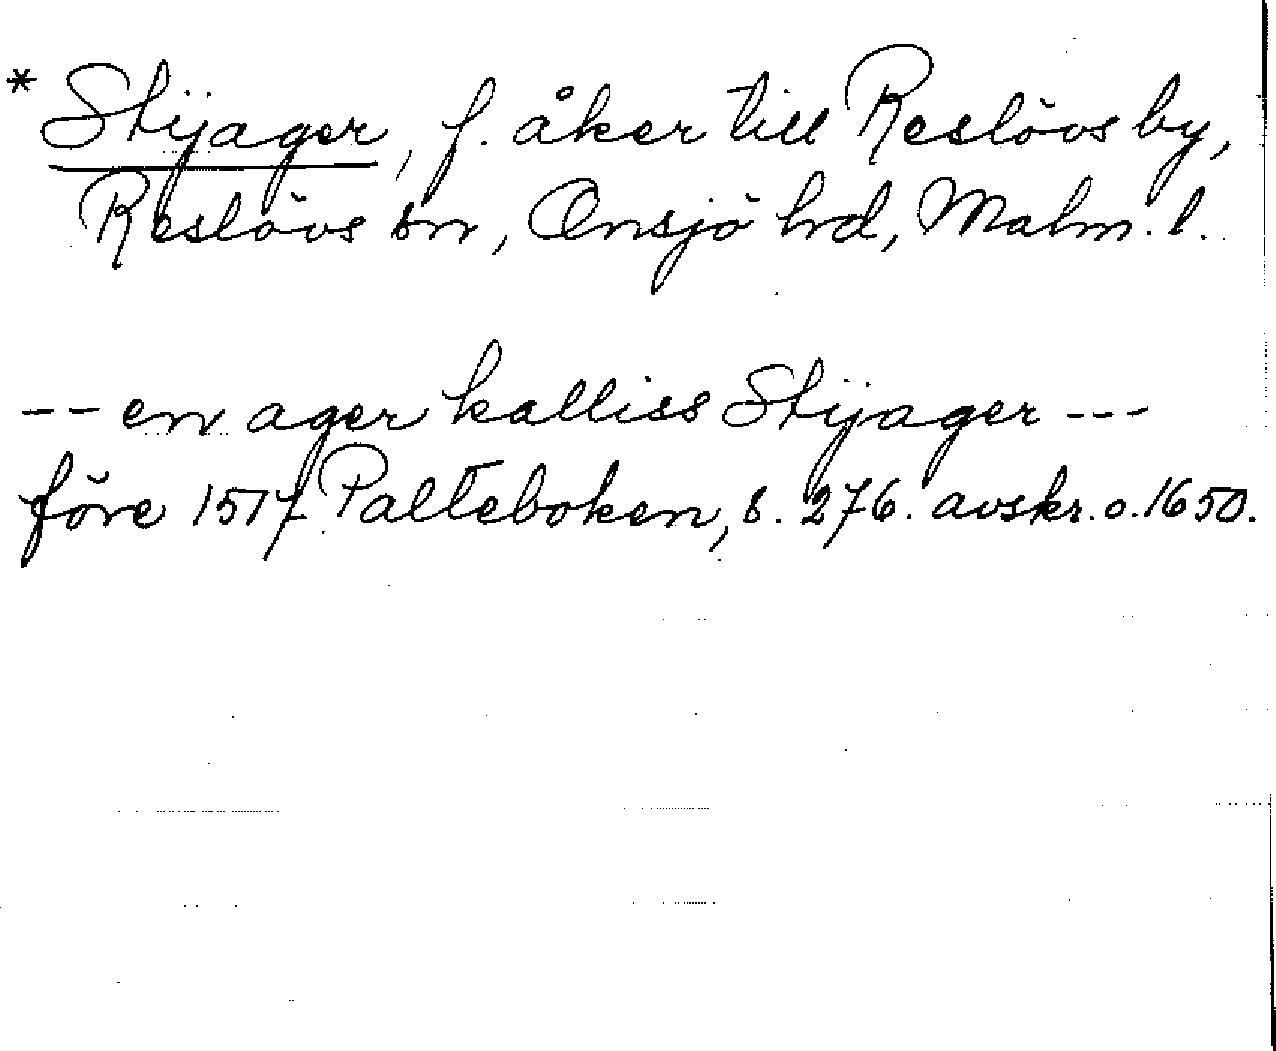 * Stijager, f. åker till Reslövs by,
Reslövs sn, Onsjö hd, Malm. l.
-- en ager kalliss Stijager ---
före 1517 Palteboken, s. 276. avskr. o. 1650.